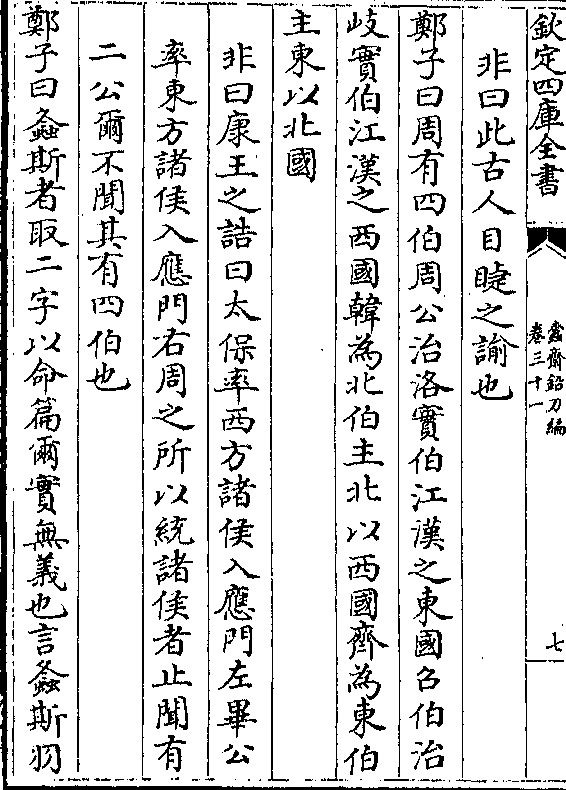 欽定四庫全書
蠹齋鉛刀編
卷三十一
七
非曰此古人目睫之諭也
鄭子曰周有四伯周公治洛實伯江漢之東國召伯治
岐實伯江漢之西國韓為北伯主北以西國齊為東伯
主東以北國
非曰康王之誥曰太保率西方諸侯入應門左畢公
率東方諸侯入應門右周之所以統諸侯者止聞有
二公爾不聞其有四伯也
鄭子曰螽斯者取二字以命篇爾實無義也言螽斯羽